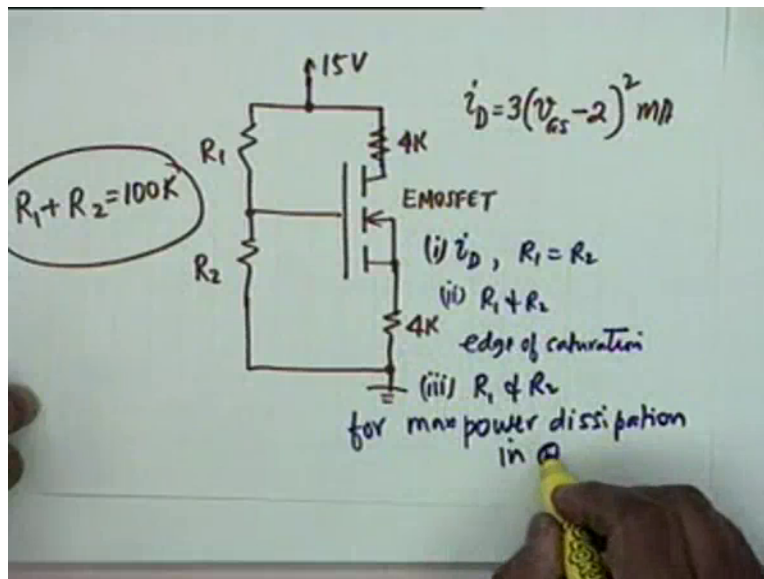 15V
i_D = 3(v_GS - 2)^2 mA
R1
4K
R1 + R2 = 100K
EMOSFET
R2
(i) i_D , R1 = R2
(ii) R1 & R2
4K
edge of saturation
(iii) R1 & R2
for max power dissipation
in